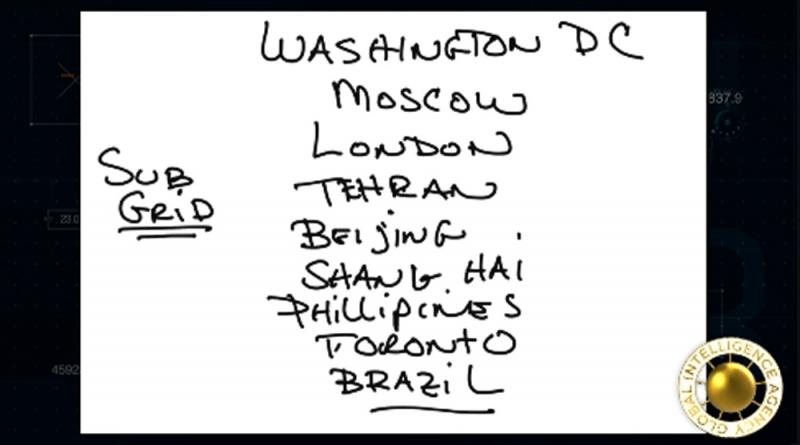 WASHINGTON DC
MOSCOW
LONDON
SUB
GRiD
TEHRAN
BEijiNG
SHANG HAI
PHilliPiNES
TORONTO
BRAZiL
837.9
23.0
4592
GLOBAL INTELLIGENCE AGENCY